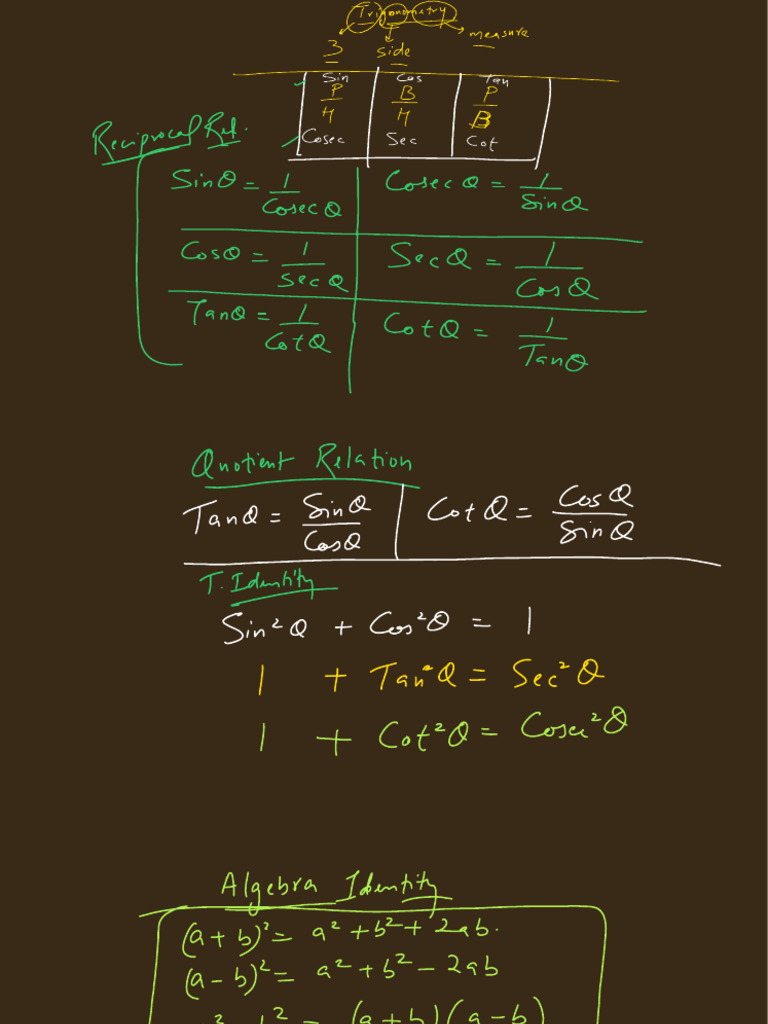 Trigonometry
3 side measure
Sin Cos Tan
P/H B/H P/B
Cosec Sec Cot
Reciprocal Rel.
Sinθ = 1/Cosecθ Cosecθ = 1/Sinθ
Cosθ = 1/Secθ Secθ = 1/Cosθ
Tanθ = 1/Cotθ Cotθ = 1/Tanθ
Quotient Relation
Tanθ = Sinθ/Cosθ Cotθ = Cosθ/Sinθ
T. Identity
Sin²θ + Cos²θ = 1
1 + Tan²θ = Sec²θ
1 + Cot²θ = Cosec²θ
Algebra Identity
(a + b)² = a² + b² + 2ab.
(a - b)² = a² + b² - 2ab
= (a + b)(a - b)